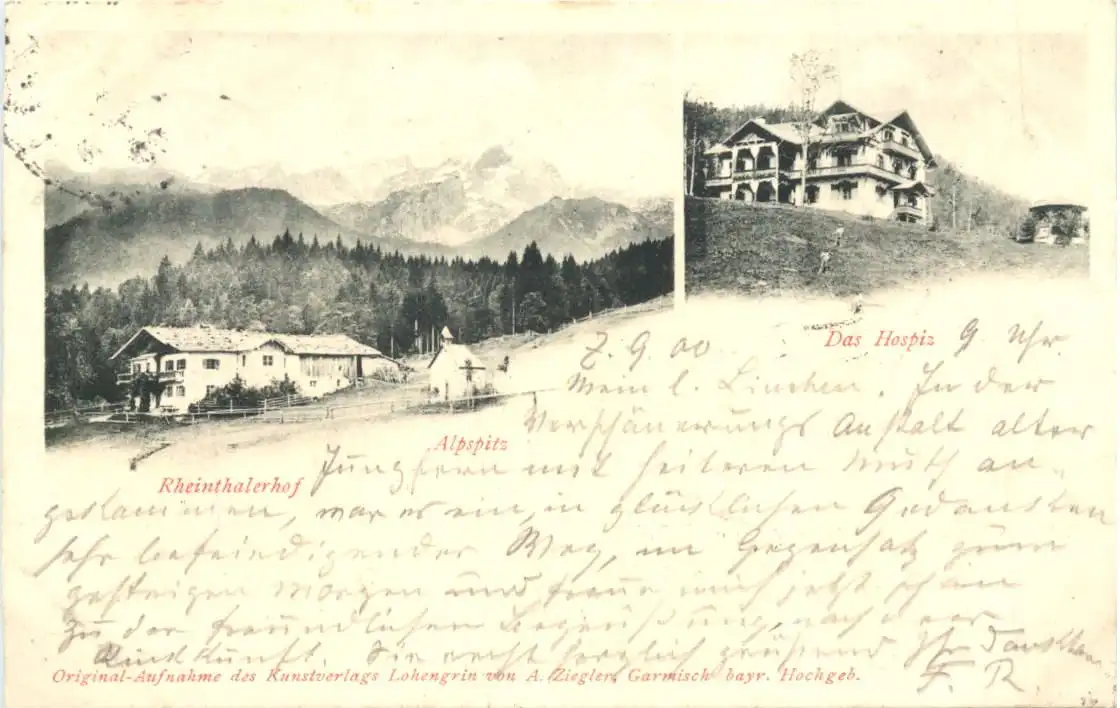 Das Hospiz
7.9.00 9 Uhr
Mein l. Linchen. In der
Verschönerungs Anstalt alter
Alpspitz
Jungfern mit heiteren Muth an-
Rheinthalerhof
gekommen, war es ein, in glücklichen Gedanken
sehr befriedigender Weg, im Gegensatz zum
gestrigen Morgen und freue mich jetzt schon
zu der freundlichen Begrüßung, nach
Rückkunft. Sie recht herzlich grüßend Ihr dankb.
Original-Aufnahme des Kunstverlags Lohengrin von A. Ziegler, Garmisch bayr. Hochgeb.
F. R.